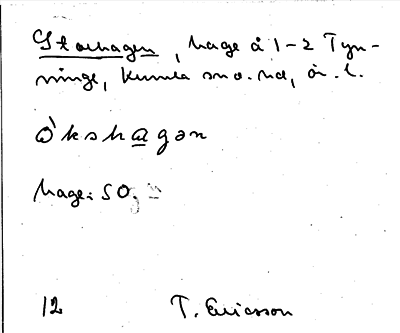 Storhagen, hage å 1-2 Tyn-
ninge, Kumla sn o. hd, ör. l.
ò'kshagan
hage: SO.
12 T. Ericsson